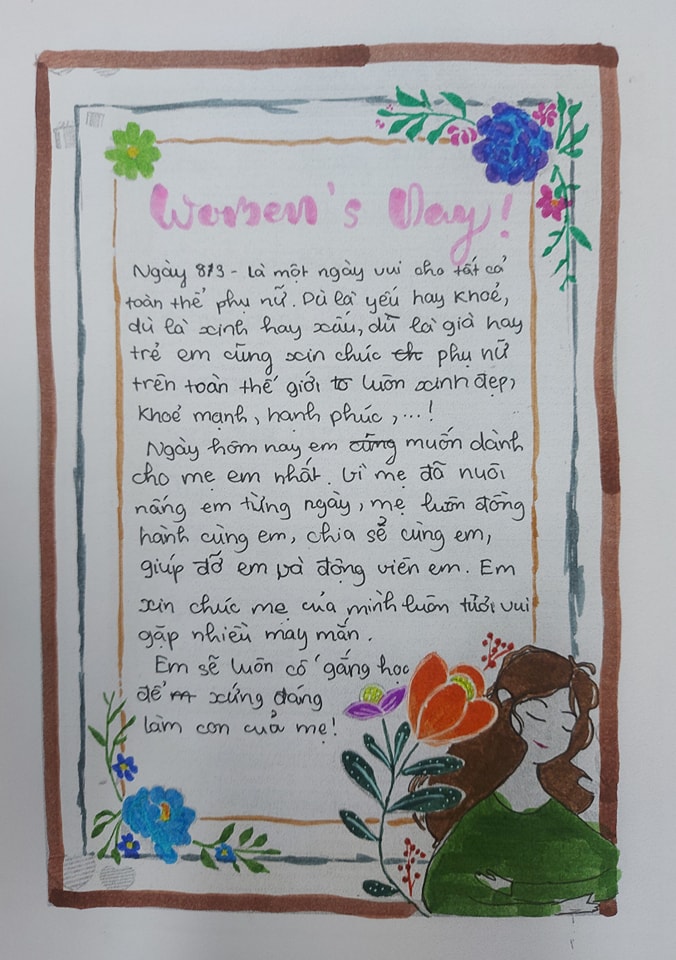 Women's Day!
Ngày 8/3 - Là một ngày vui cho tất cả
toàn thể phụ nữ. Dù là yếu hay khoẻ,
dù là xinh hay xấu, dù là già hay
trẻ em cũng xin chúc ch phụ nữ
trên toàn thế giới to luôn xinh đẹp,
khoẻ mạnh, hạnh phúc, ...!
Ngày hôm nay em cũng muốn dành
cho mẹ em nhất. Vì mẹ đã nuôi
nấng em từng ngày, mẹ luôn đồng
hành cùng em, chia sẻ cùng em,
giúp đỡ em và động viên em. Em
xin chúc mẹ của mình luôn tươi vui
gặp nhiều may mắn.
Em sẽ luôn cố gắng học
để xứng đáng
làm con của mẹ!